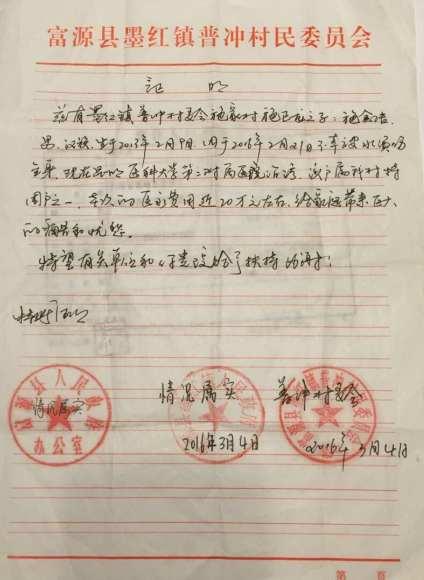 富源县墨红镇普冲村民委员会
证 明
兹有墨红镇普冲村委会施家村施已友之子：施金浩
男、汉族，生于2013年2月9日，因于2016年2月21日不幸被
现在昆明医科大学第二附属医院治疗，该户属我村特
困户之一，本次的医疗费用近20万元左右，给家庭带来巨大
的痛苦和忧愁。
特望有关单位和给予扶持为谢！
特此证明
富源县人民政府
情况属实
办公室
情况属实
2016年3月4日
普冲村委会
2016年3月4日
第 页